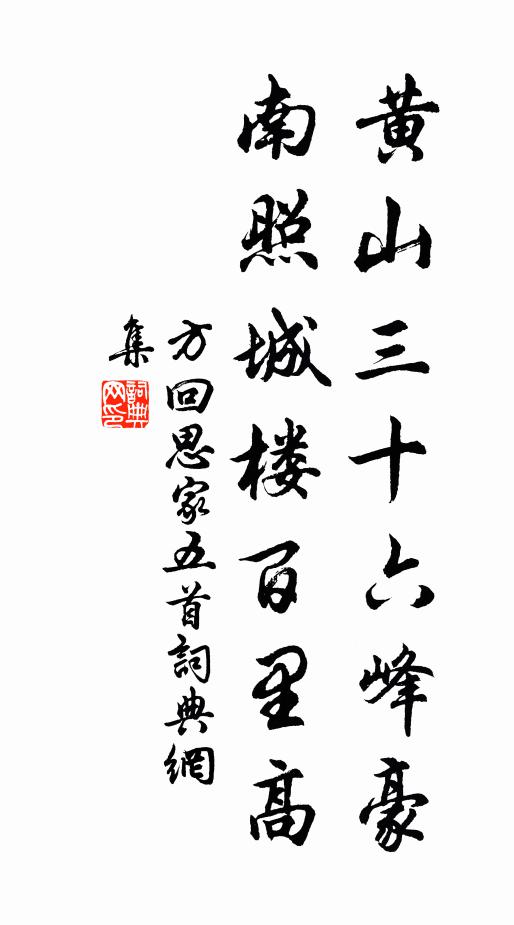 黄山三十六峰豪
南照城楼百里高
方回思家五首詞典網
集
詞典
网印